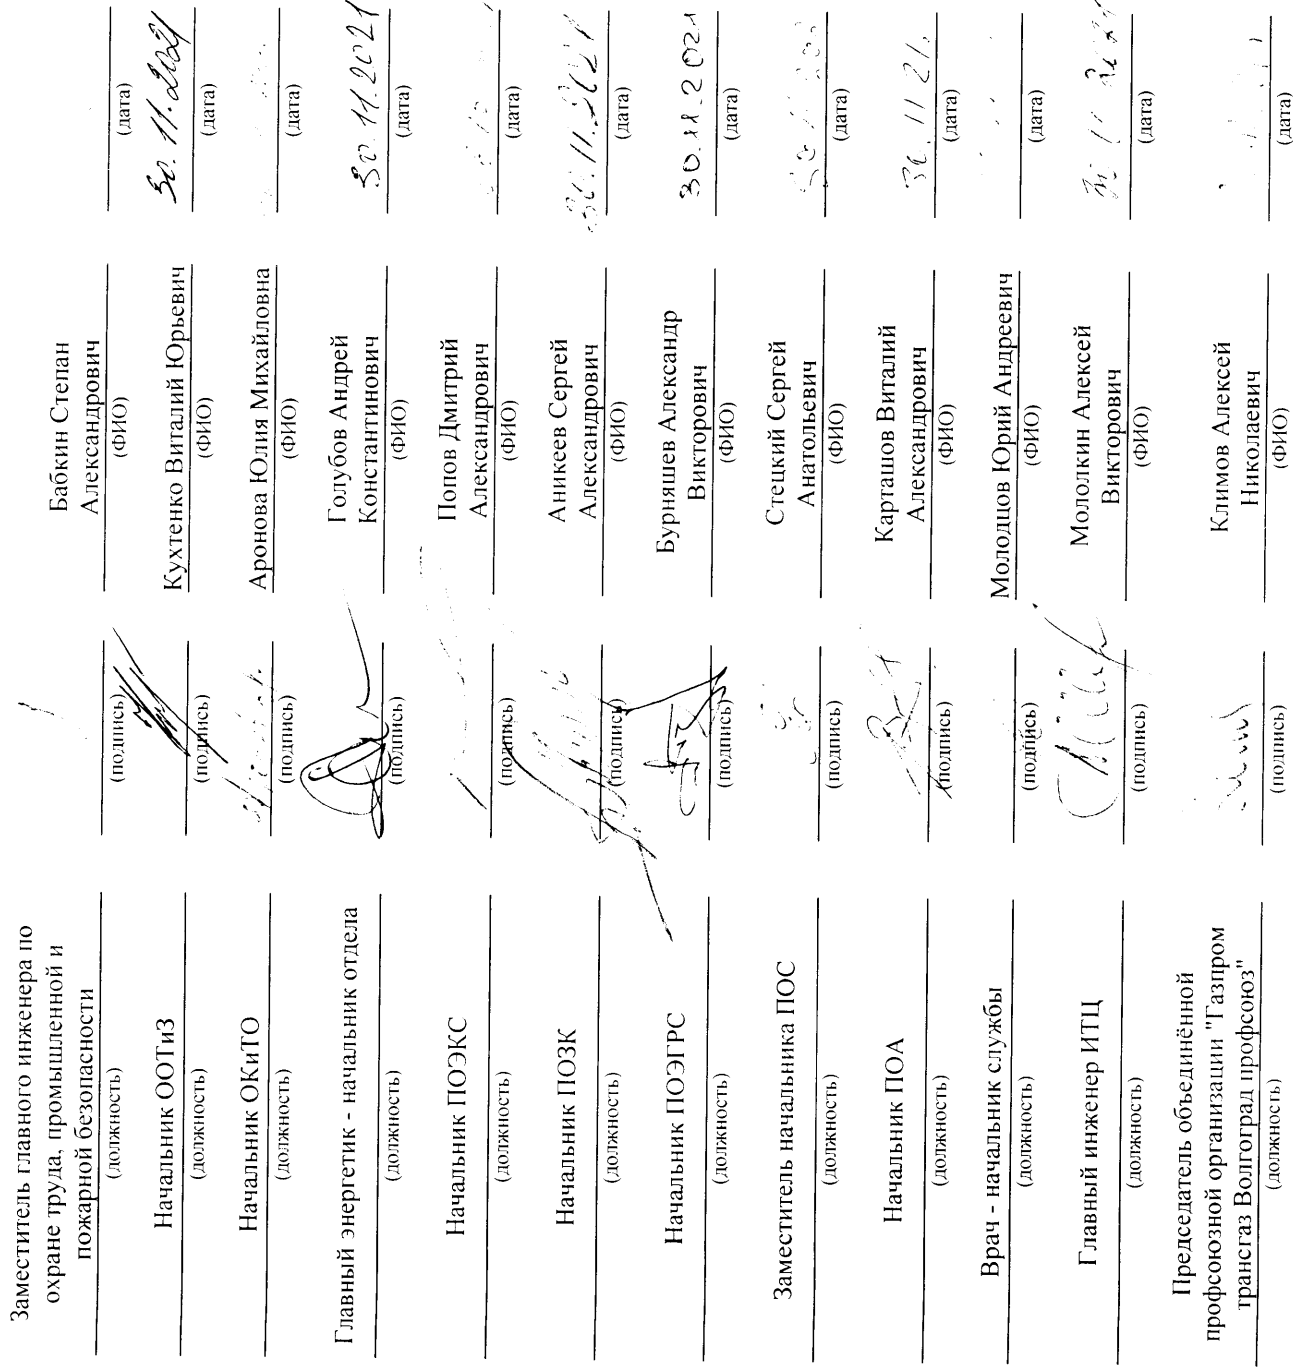 Заместитель главного инженера по
охране труда, промышленной и
пожарной безопасности
Бабкин Степан
Александрович
(должность) (подпись) (ФИО) (дата)
Начальник ООТиЗ Кухтенко Виталий Юрьевич 30.11.2021
(должность) (подпись) (ФИО) (дата)
Начальник ОКиТО Аронова Юлия Михайловна
(должность) (подпись) (ФИО) (дата)
Главный энергетик - начальник отдела
Голубов Андрей
Константинович
30.11.2021
(должность) (подпись) (ФИО) (дата)
Начальник ПОЭКС
Попов Дмитрий
Александрович
(должность) (подпись) (ФИО) (дата)
Начальник ПОЗК
Аникеев Сергей
Александрович
30.11.2021
(должность) (подпись) (ФИО) (дата)
Начальник ПОЭГРС
Бурняшев Александр
Викторович
30.11.2021
(должность) (подпись) (ФИО) (дата)
Заместитель начальника ПОС
Стецкий Сергей
Анатольевич
(должность) (подпись) (ФИО) (дата)
Начальник ПОА
Карташов Виталий
Александрович
30.11.21.
(должность) (подпись) (ФИО) (дата)
Врач - начальник службы Молодцов Юрий Андреевич
(должность) (подпись) (ФИО) (дата)
Главный инженер ИТЦ
Мололкин Алексей
Викторович
30 11 2021
(должность) (подпись) (ФИО) (дата)
Председатель объединённой
профсоюзной организации "Газпром
трансгаз Волгоград профсоюз"
Климов Алексей
Николаевич
(должность) (подпись) (ФИО) (дата)